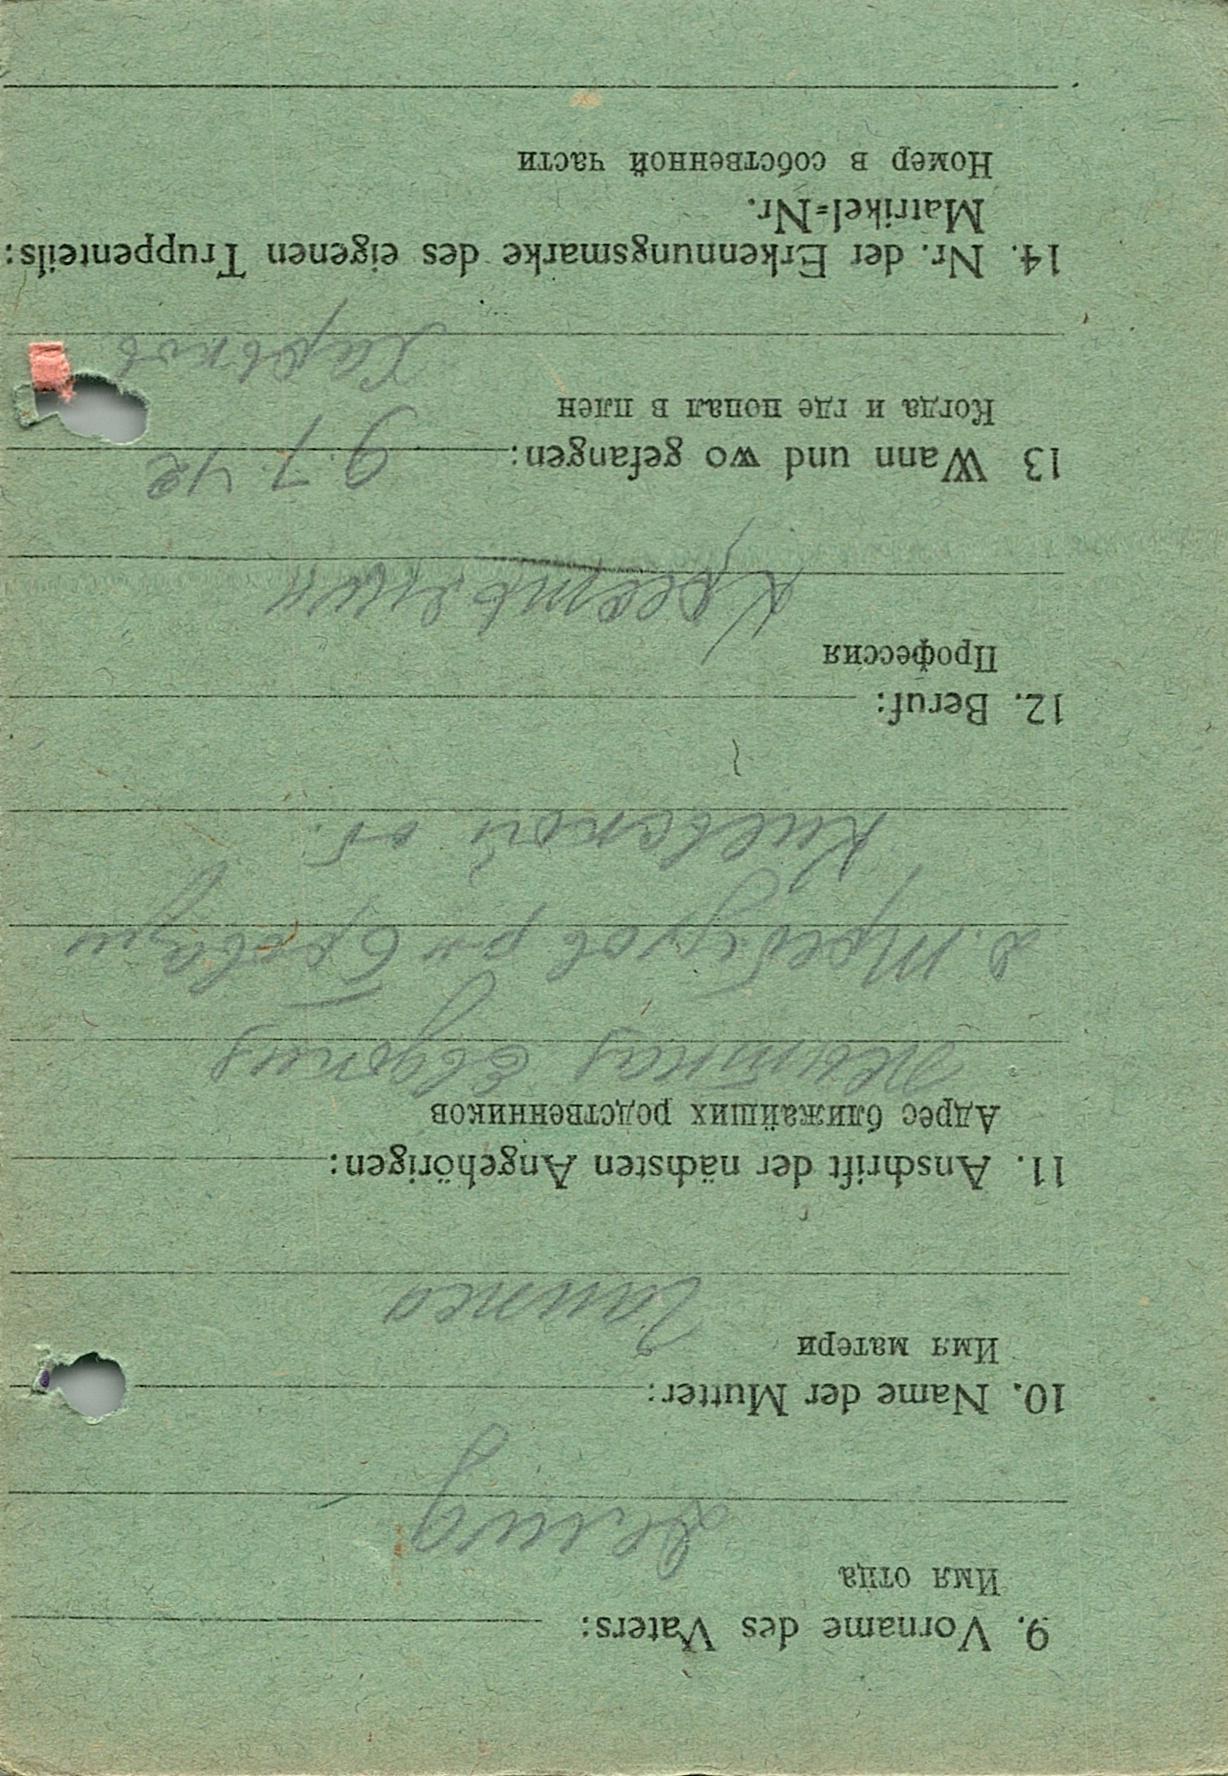 9. Vorname des Vaters:
Имя отца
Демид
10. Name der Mutter:
Имя матери
11. Anschrift der nächsten Angehörigen:
Адрес ближайших родственников
Евдокия
д. Требухов р-н Бровары
Киевской об.
12. Beruf:
Профессия
Крестьянин
13 Wann und wo gefangen: 9.7.42
Когда и где попал в плен
Харьков
14. Nr. der Erkennungsmarke des eigenen Truppenteils:
Matrikel=Nr.
Номер в собственной части